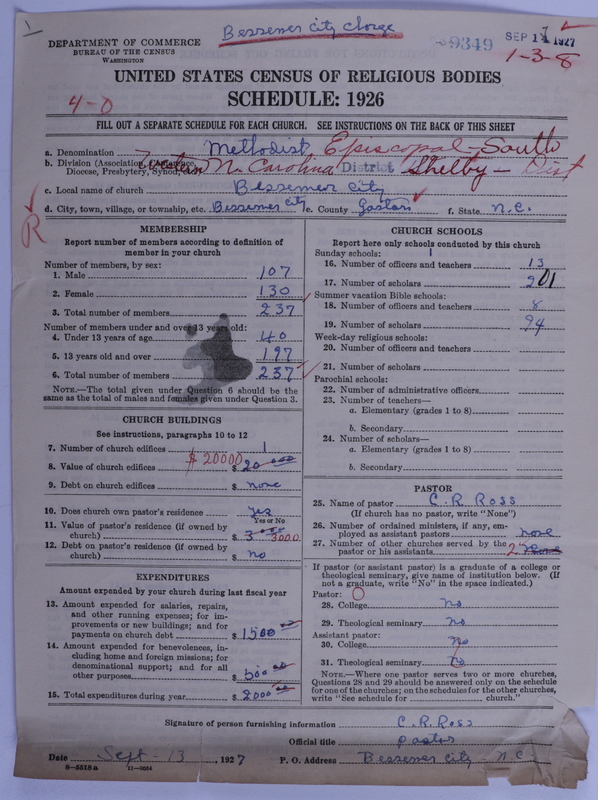 1
Bessemer City Charge
DEPARTMENT OF COMMERCE
BUREAU OF THE CENSUS
WASHINGTON
9349
SEP 14 1927
1-3-8
UNITED STATES CENSUS OF RELIGIOUS BODIES
SCHEDULE: 1926
4-0
FILL OUT A SEPARATE SCHEDULE FOR EACH CHURCH. SEE INSTRUCTIONS ON THE BACK OF THIS SHEET
a. Denomination Methodist Episcopal-South
b. Division (Association, Conference, Diocese, Presbytery, Synod, Western N. Carolina District Shelby - Dist
c. Local name of church Bessemer City
d. City, town, village, or township, etc. Bessemer City e. County Gaston f. State N.C.
R
MEMBERSHIP
Report number of members according to definition of
member in your church
Number of members, by sex:
1. Male 107
2. Female 130
3. Total number of members 237
Number of members under and over 13 years old:
4. Under 13 years of age 40
5. 13 years old and over 197
6. Total number of members 237
NOTE.—The total given under Question 6 should be the
same as the total of males and females given under Question 3.
CHURCH BUILDINGS
See instructions, paragraphs 10 to 12
7. Number of church edifices 1
$ 20000
8. Value of church edifices $ 20 000
9. Debt on church edifices $ none
10. Does church own pastor's residence yes
Yes or No
11. Value of pastor's residence (if owned by
church) $ 3 000 3000
12. Debt on pastor's residence (if owned by
church) $ no
EXPENDITURES
Amount expended by your church during last fiscal year
13. Amount expended for salaries, repairs,
and other running expenses; for im-
provements or new buildings; and for
payments on church debt $ 1500 00
14. Amount expended for benevolences, in-
cluding home and foreign missions; for
denominational support; and for all
other purposes $ 500 00
15. Total expenditures during year $ 2000 00
CHURCH SCHOOLS
Report here only schools conducted by this church
Sunday schools: 1
16. Number of officers and teachers 13
17. Number of scholars 201
Summer vacation Bible schools:
18. Number of officers and teachers 8
19. Number of scholars 94
Week-day religious schools:
20. Number of officers and teachers
21. Number of scholars
Parochial schools:
22. Number of administrative officers
23. Number of teachers—
a. Elementary (grades 1 to 8)
b. Secondary
24. Number of scholars—
a. Elementary (grades 1 to 8)
b. Secondary
PASTOR
25. Name of pastor C. R. Ross
(If church has no pastor, write "None")
26. Number of ordained ministers, if any, em-
ployed as assistant pastors none
27. Number of other churches served by the
pastor or his assistants 2 None
If pastor (or assistant pastor) is a graduate of a college or
theological seminary, give name of institution below. (If
not a graduate, write "No" in the space indicated.)
Pastor: 0
28. College no
29. Theological seminary no
Assistant pastor:
30. College no
31. Theological seminary no
NOTE.—Where one pastor serves two or more churches,
Questions 28 and 29 should be answered only on the schedule
for one of the churches; on the schedules for the other churches,
write "See schedule for church."
Signature of person furnishing information C. R. Ross
Official title pastor
Date Sept - 13, 1927 P. O. Address Bessemer City N.C.
8-5518a 11-9054